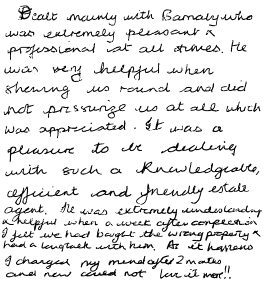 Dealt mainly with Barnaby who
was extremely pleasant &
professional at all times. He
was very helpful when
showing us round and did
not pressurize us at all which
was appreciated. It was a
pleasure to be dealing
with such a knowledgeable,
efficient and friendly estate
agent. He was extremely understanding
& helpful when a week after completion
I felt we had bought the wrong property &
had a long talk with him. As it happens
I changed my mind after 2 mates
and now could not love it more!!